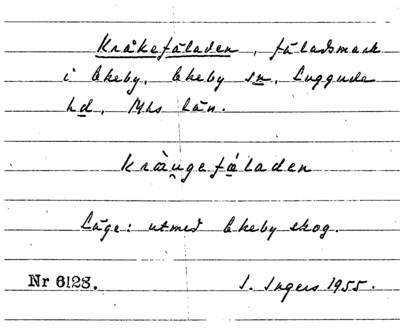 Kråkefäladen, fäladsmark
i Ekeby, Ekeby sn, Luggude
hd, Mhs län.
Läge: utmed Ekeby skog.
Nr 6123. I. Ingers 1955.